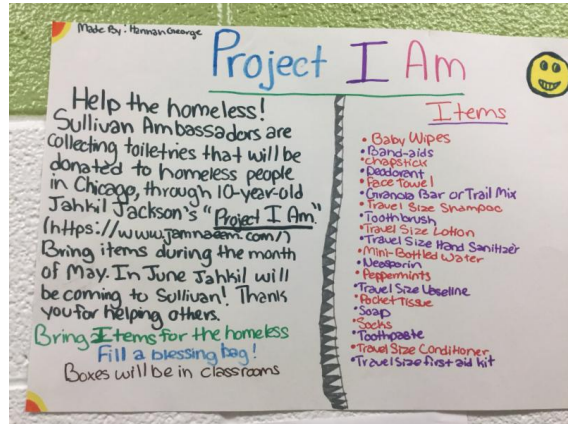 Made By: Hannah George
Project I Am
Help the homeless!
Sullivan Ambassadors are
collecting toiletries that will be
donated to homeless people
in Chicago, through 10-year-old
Jahkil Jackson's "Project I Am."
(https://www.jamnaeem.com/)
Bring items during the month
of May. In June Jahkil will
be coming to Sullivan! Thank
you for helping others.
Bring Items for the homeless
Fill a blessing bag!
Boxes will be in classrooms
Items
• Baby Wipes
• Band-aids
• Chapstick
• Deodorant
• Face Towel
• Granola Bar or Trail Mix
• Travel Size Shampoo
• Toothbrush
• Travel Size Lotion
• Travel Size Hand Sanitizer
• Mini-Bottled Water
• Neosporin
• Peppermints
• Travel Size Vaseline
• Pocket Tissue
• Soap
• Socks
• Toothpaste
• Travel Size Conditioner
• Travel Size first aid kit